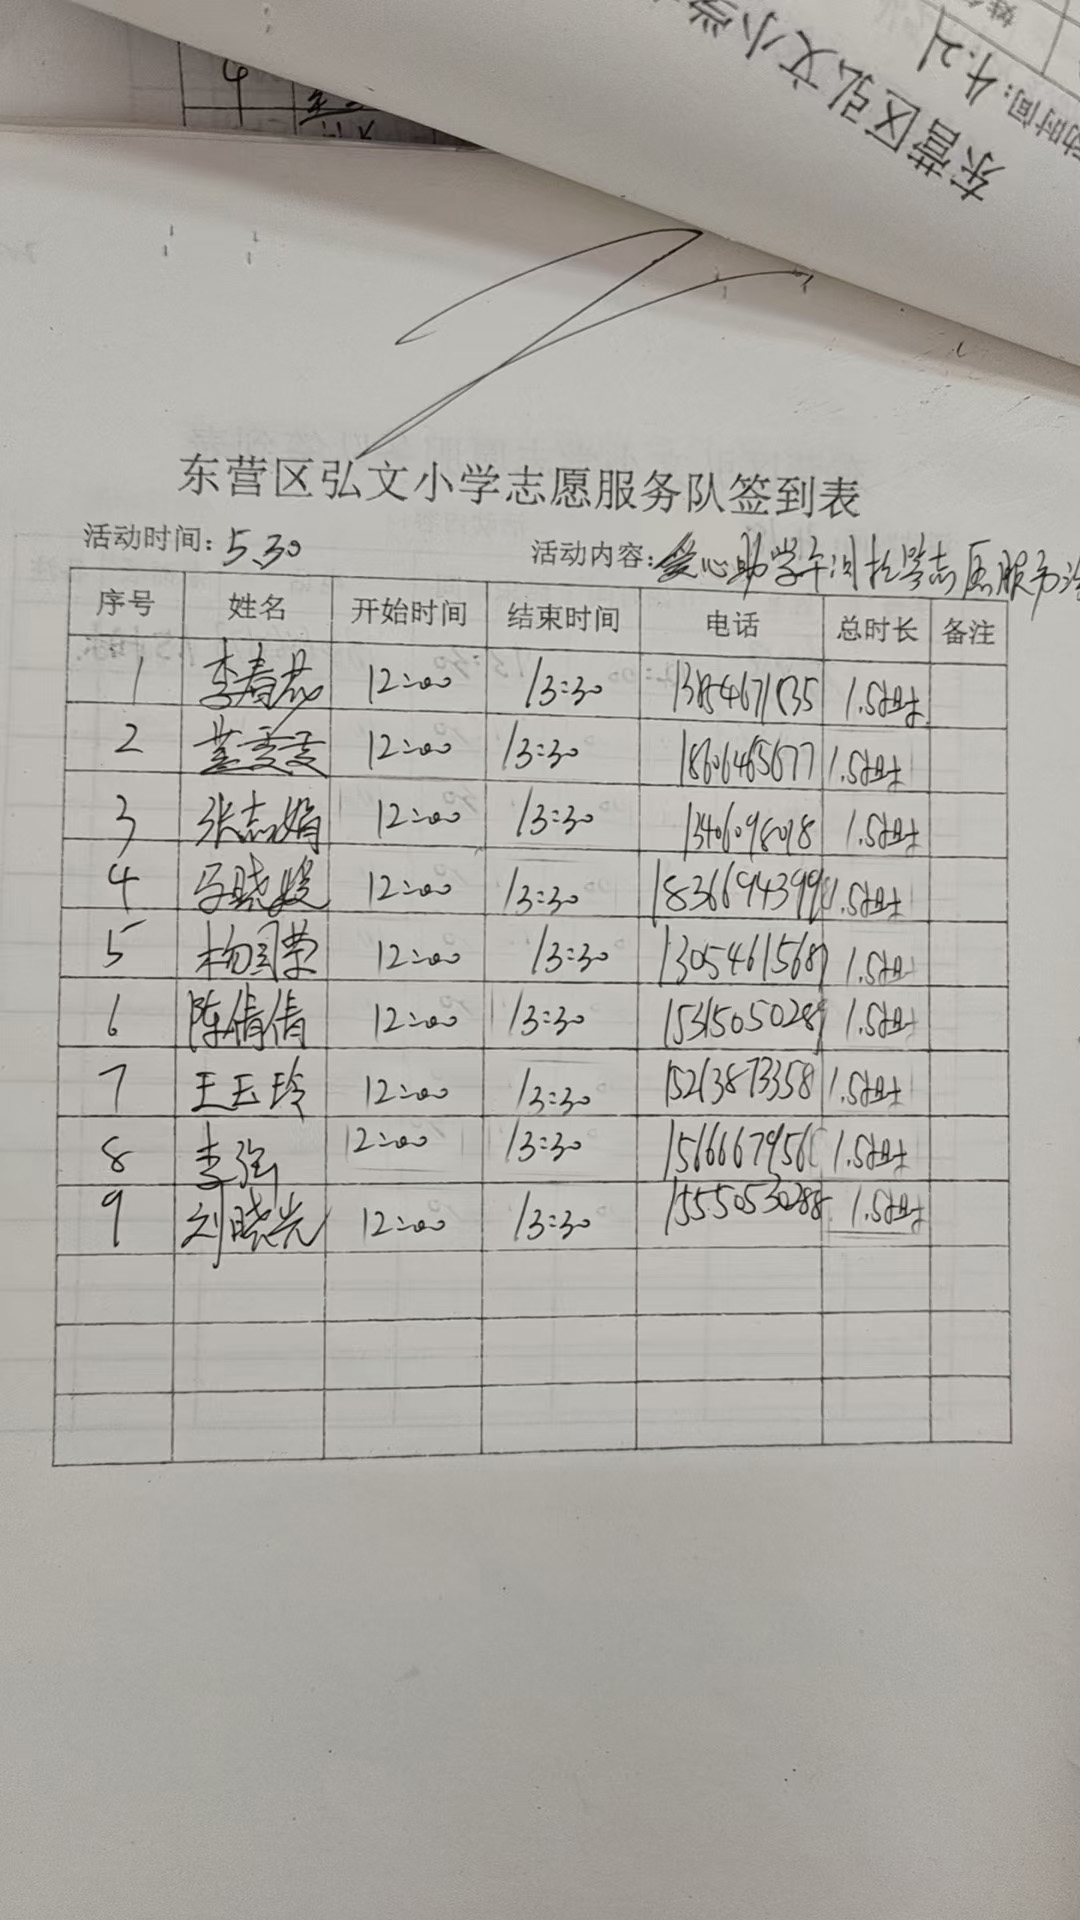 东营区弘文小学
动时间: 4.21
姓
4
东营区弘文小学志愿服务队签到表
活动时间: 5.30 活动内容: 爱心助学午间托管志愿服务活
序号 姓名 开始时间 结束时间 电话 总时长 备注
1 李春 12:00 13:30 1.5小时
2 董雯雯 12:00 13:30 18606465677 1.5小时
3 张志娟 12:00 13:30 1.5小时
4 马晓媛 12:00 13:30 1.5小时
5 杨国荣 12:00 13:30 13054615687 1.5小时
6 陈倩倩 12:00 13:30 15315050289 1.5小时
7 王玉玲 12:00 13:30 15213873358 1.5小时
8 李强 12:00 13:30 1.5小时
9 刘晓光 12:00 13:30 15550530288 1.5小时